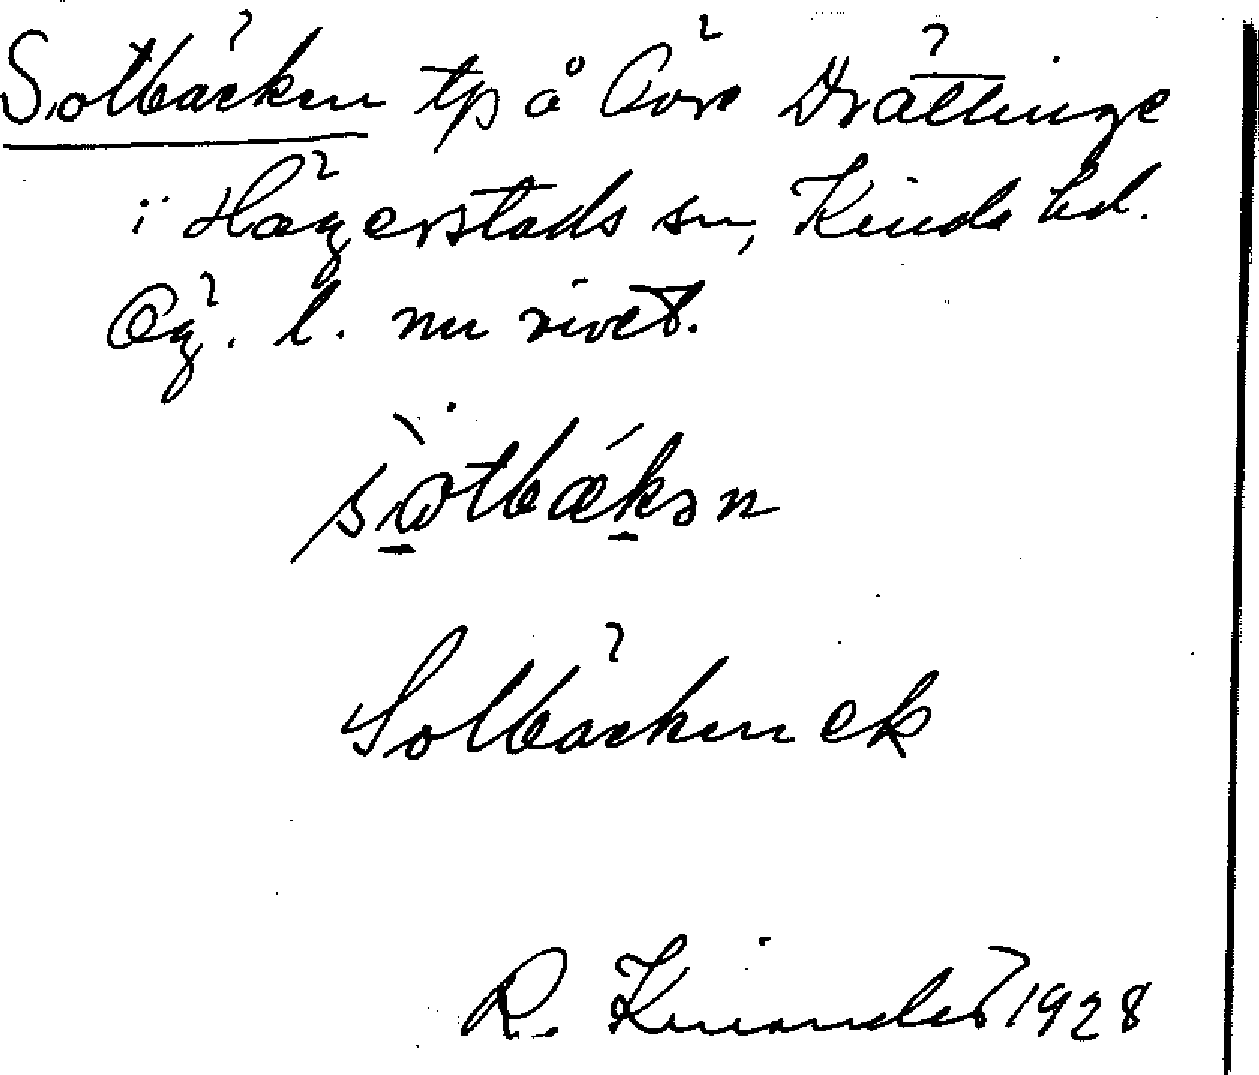 Solbäcken tp å Övre Drättinge
i Hägerstads sn, Kinda hd.
Ög. l. nu rivet.
Solbäcken ek
R. Kinander 1928